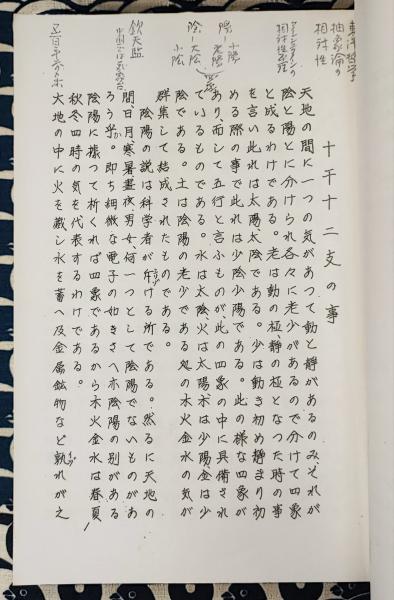 東洋哲学
抽象論の
相対性
アインシュタインの
相対性原理
陽＝小陽
　－老陽
陰－大陰
　小陰
欽天監
十干十二支の事
天地の間に一つの気があつて動と静があるのみぞれが
陰と陽とに分けられ各々に老少があるので分けて四象
と成るわけである。老は動の極、静の極となつた時の事
を言い此れは太陽太陰である。少は動き初め静まり初
める際の事で此れは少陰少陽である。此の様な四象が
あり、而して五行と言ふものが、此の四象の中に具備され
ているものである。水は太陰、火は太陽木は少陽金は少
陰である。土は陰陽の老少である処の木火金水の気が
群集して結成されたものである。
陰陽の説は科学者が分ける所である。然るに天地の
間、日月寒暑昼夜男女、何一つとして陰陽でないものがあ
ろう乎。即ち細微な電子の如きさへ亦陰陽の別がある
陰陽に據つて析くれば四象であるから木火金水は春夏
秋冬四時の気を代表するわけである。
大地の中に火を蔵し水を蓄へ及金属鉱物など孰れが之